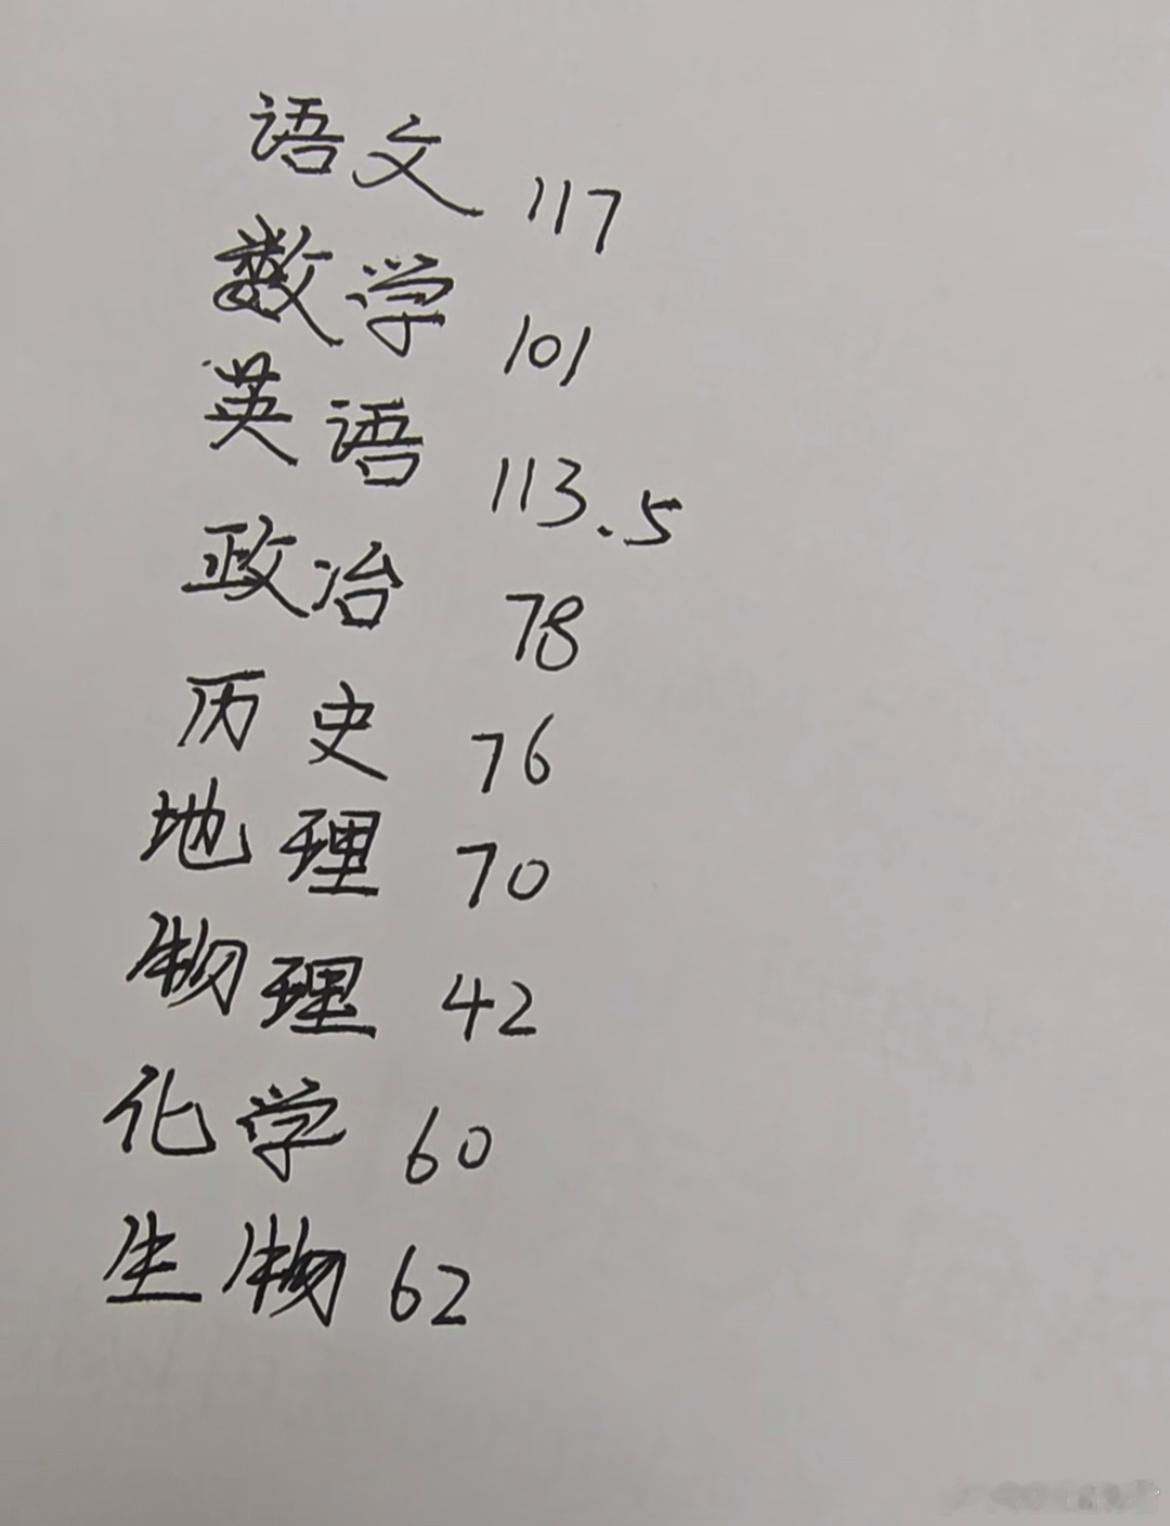 语文 117
数学 101
英语 113.5
政治 78
历史 76
地理 70
物理 42
化学 60
生物 62